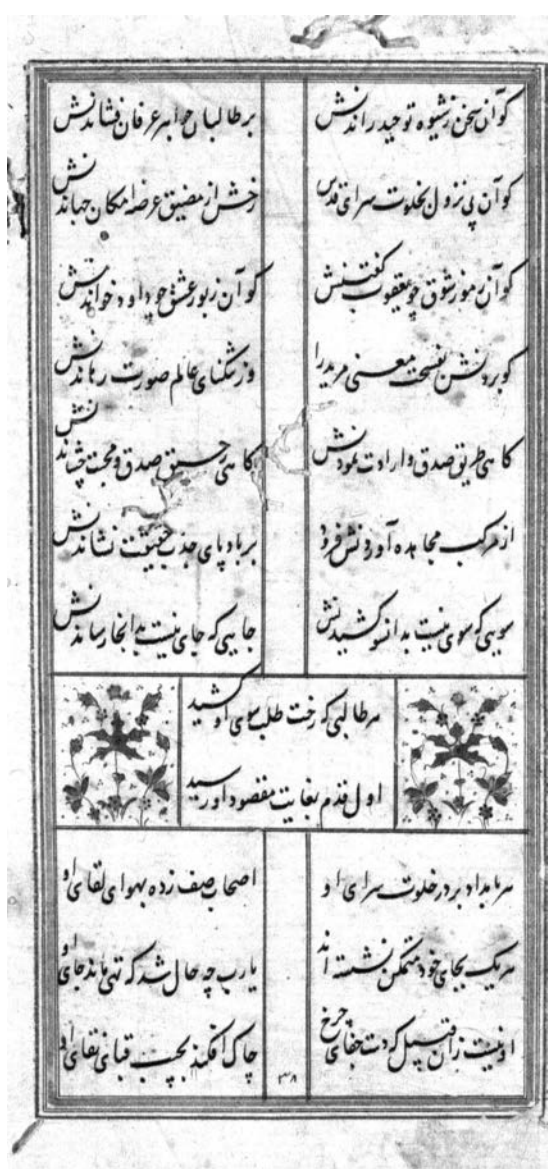 کو آن سخن ز شیوه توحید راندنش بر طالبان جواهر عرفان فشاندنش
کو آن پی نزول بخلوت سرای قدس رخش از مضیق عرصه امکان جهاندنش
کو آن رموز شوق چو یعقوب گفتنش کو آن زبور عشق چو داود خواندنش
کو بردنش بفسحت معنی مرید را وز تنگنای عالم صورت رهاندنش
کاهی طریق صدق و ارادت نمودنش کاهی رحیق صدق و محبت چشاندنش
از مرکب مجاهده آوردنش فرود بر باد پای جذب حقیقت نشاندنش
سویی که سوی نیست بدانسو کشیدنش جایی که جای نیست بدانجا رساندنش
هر طالبی که رخت طلب سوی او کشید
اول قدم بغایت مقصود او رسید
هر بامداد بر در خلوت سرای او اصحاب صف زده بهوای لقای او
هریک بجای خود متمکن نشسته اند یارب چه حال شد که تهی ماند جای او
او نیست زان قبیل که دست جفای چرخ چاک افکند بجیب قبای بقای او